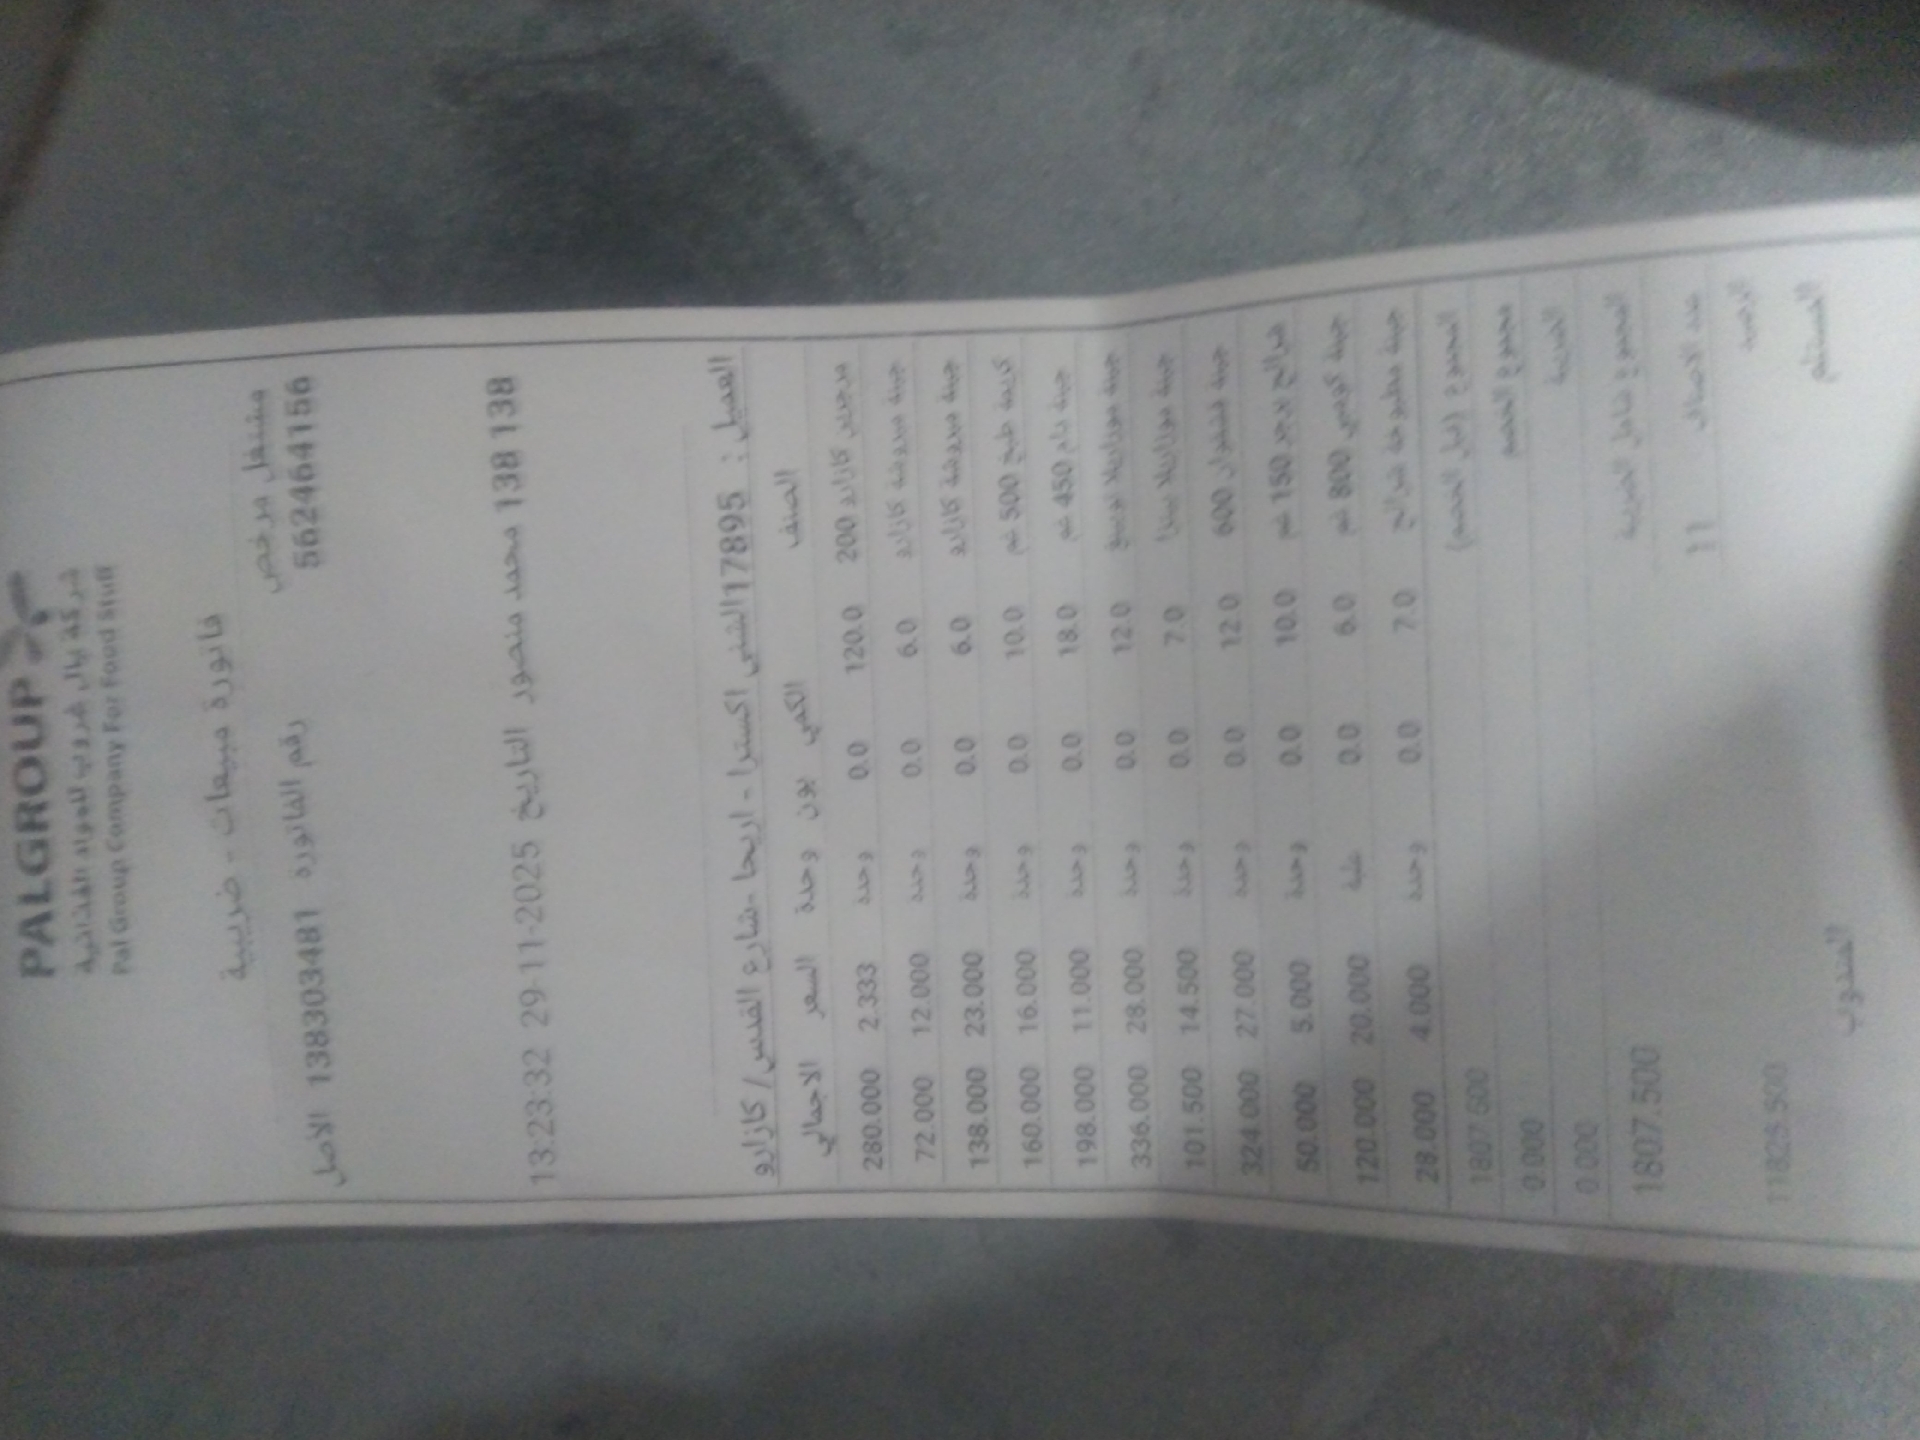 PALGROUP
شركة بال جروب للمواد الغذائية
Pal Group Company For Food Stuff
فاتورة مبيعات - ضريبية
مشتغل مرخص رقم الفاتورة 138303481 الاصل
562464156
138 138 محمد منصور التاريخ 29-11-2025 13:23:32
العميل : 17895النتشي اكسترا - اريحا -شارع القدس/ كازارو
الصنف الكمي بون وحدة السعر الاجمالي
كازارو 200 120.0 0.0 وحدة 2.333 280.000
جبنة مبروشة كازارو 6.0 0.0 وحدة 12.000 72.000
جبنة مبروشة كازارو 6.0 0.0 وحدة 23.000 138.000
كريمة طبخ 500 غم 10.0 0.0 وحدة 16.000 160.000
جبنة 450 غم 18.0 0.0 وحدة 11.000 198.000
جبنة موزاريلا 12.0 0.0 وحدة 28.000 336.000
جبنة موزاريلا بيتزا 7.0 0.0 وحدة 14.500 101.500
جبنة قشقوان 600 12.0 0.0 وحدة 27.000 324.000
شرائح برجر 150 غم 10.0 0.0 وحدة 5.000 50.000
جبنة 800 غم 6.0 0.0 علبة 20.000 120.000
جبنة مطبوخة شرائح 7.0 0.0 وحدة 4.000 28.000
المجموع (قبل الخصم) 1807.600
مجموع الخصم 0.000
الضريبة 0.000
المجموع شامل الضريبة 1807.500
عدد الاصناف 11
الرصيد 11825.500
المستلم المندوب